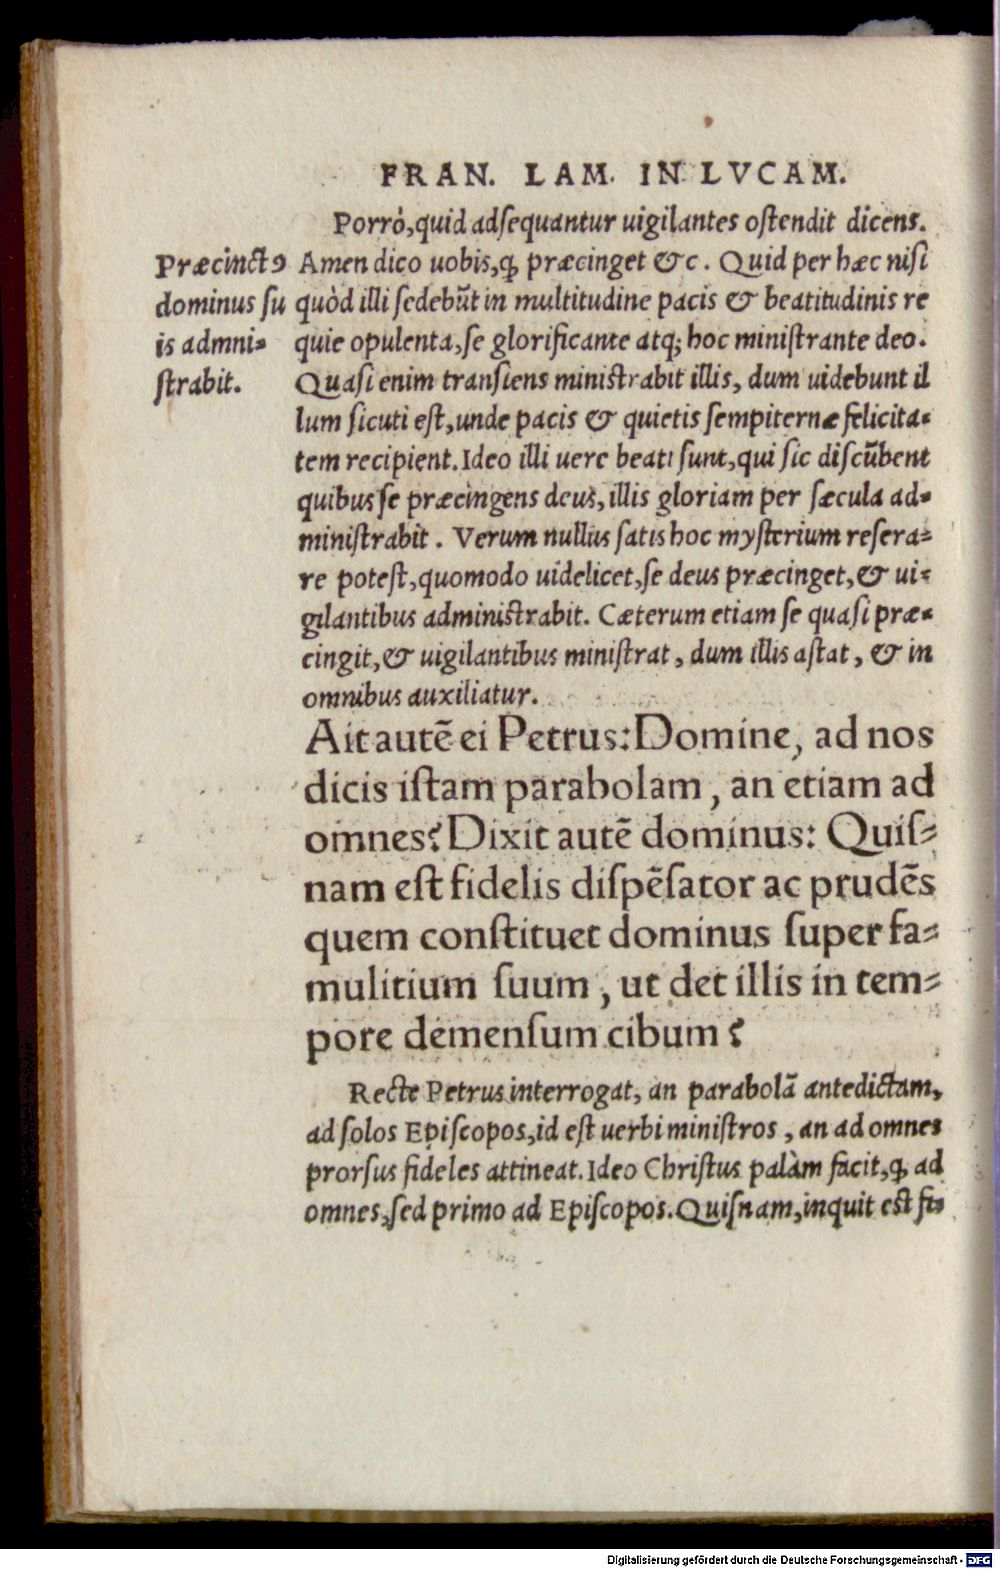 FRAN. LAM. IN LVCAM.
Porrò, quid adſequantur uigilantes oſtendit dicens.
Amen dico uobis, ꝙ præcinget &c. Quid per hæc niſi
quòd illi ſedebūt in multitudine pacis & beatitudinis re
quie opulenta, ſe glorificante atq; hoc miniſtrante deo.
Quaſi enim tranſiens miniſtrabit illis, dum uidebunt il
lum ſicuti eſt, unde pacis & quietis ſempiternæ felicita-
tem recipient. Ideo illi uere beati ſunt, qui ſic diſcūbent
quibus ſe præcingens deus, illis gloriam per ſæcula ad-
miniſtrabit. Verum nullus ſatis hoc myſterium reſera-
re poteſt, quomodo uidelicet, ſe deus præcinget, & ui-
gilantibus adminiſtrabit. Cæterum etiam ſe quaſi præ-
cingit, & uigilantibus miniſtrat, dum illis aſtat, & in
omnibus auxiliatur.
Præcinctꝰ
dominus ſu
is admni-
ſtrabit.
Ait autē ei Petrus: Domine, ad nos
dicis iſtam parabolam, an etiam ad
omnes? Dixit autē dominus: Quiſ-
nam eſt fidelis diſpēſator ac prudēs
quem conſtituet dominus ſuper fa-
mulitium ſuum, ut det illis in tem-
pore demenſum cibum?
Recte Petrus interrogat, an parabolā antedictam,
ad ſolos Epiſcopos, id eſt uerbi miniſtros, an ad omnes
prorſus fideles attineat. Ideo Chriſtus palàm facit, ꝙ ad
omnes, ſed primo ad Epiſcopos. Quiſnam, inquit eſt fi-
Digitalisierung gefördert durch die Deutsche Forschungsgemeinschaft - DFG